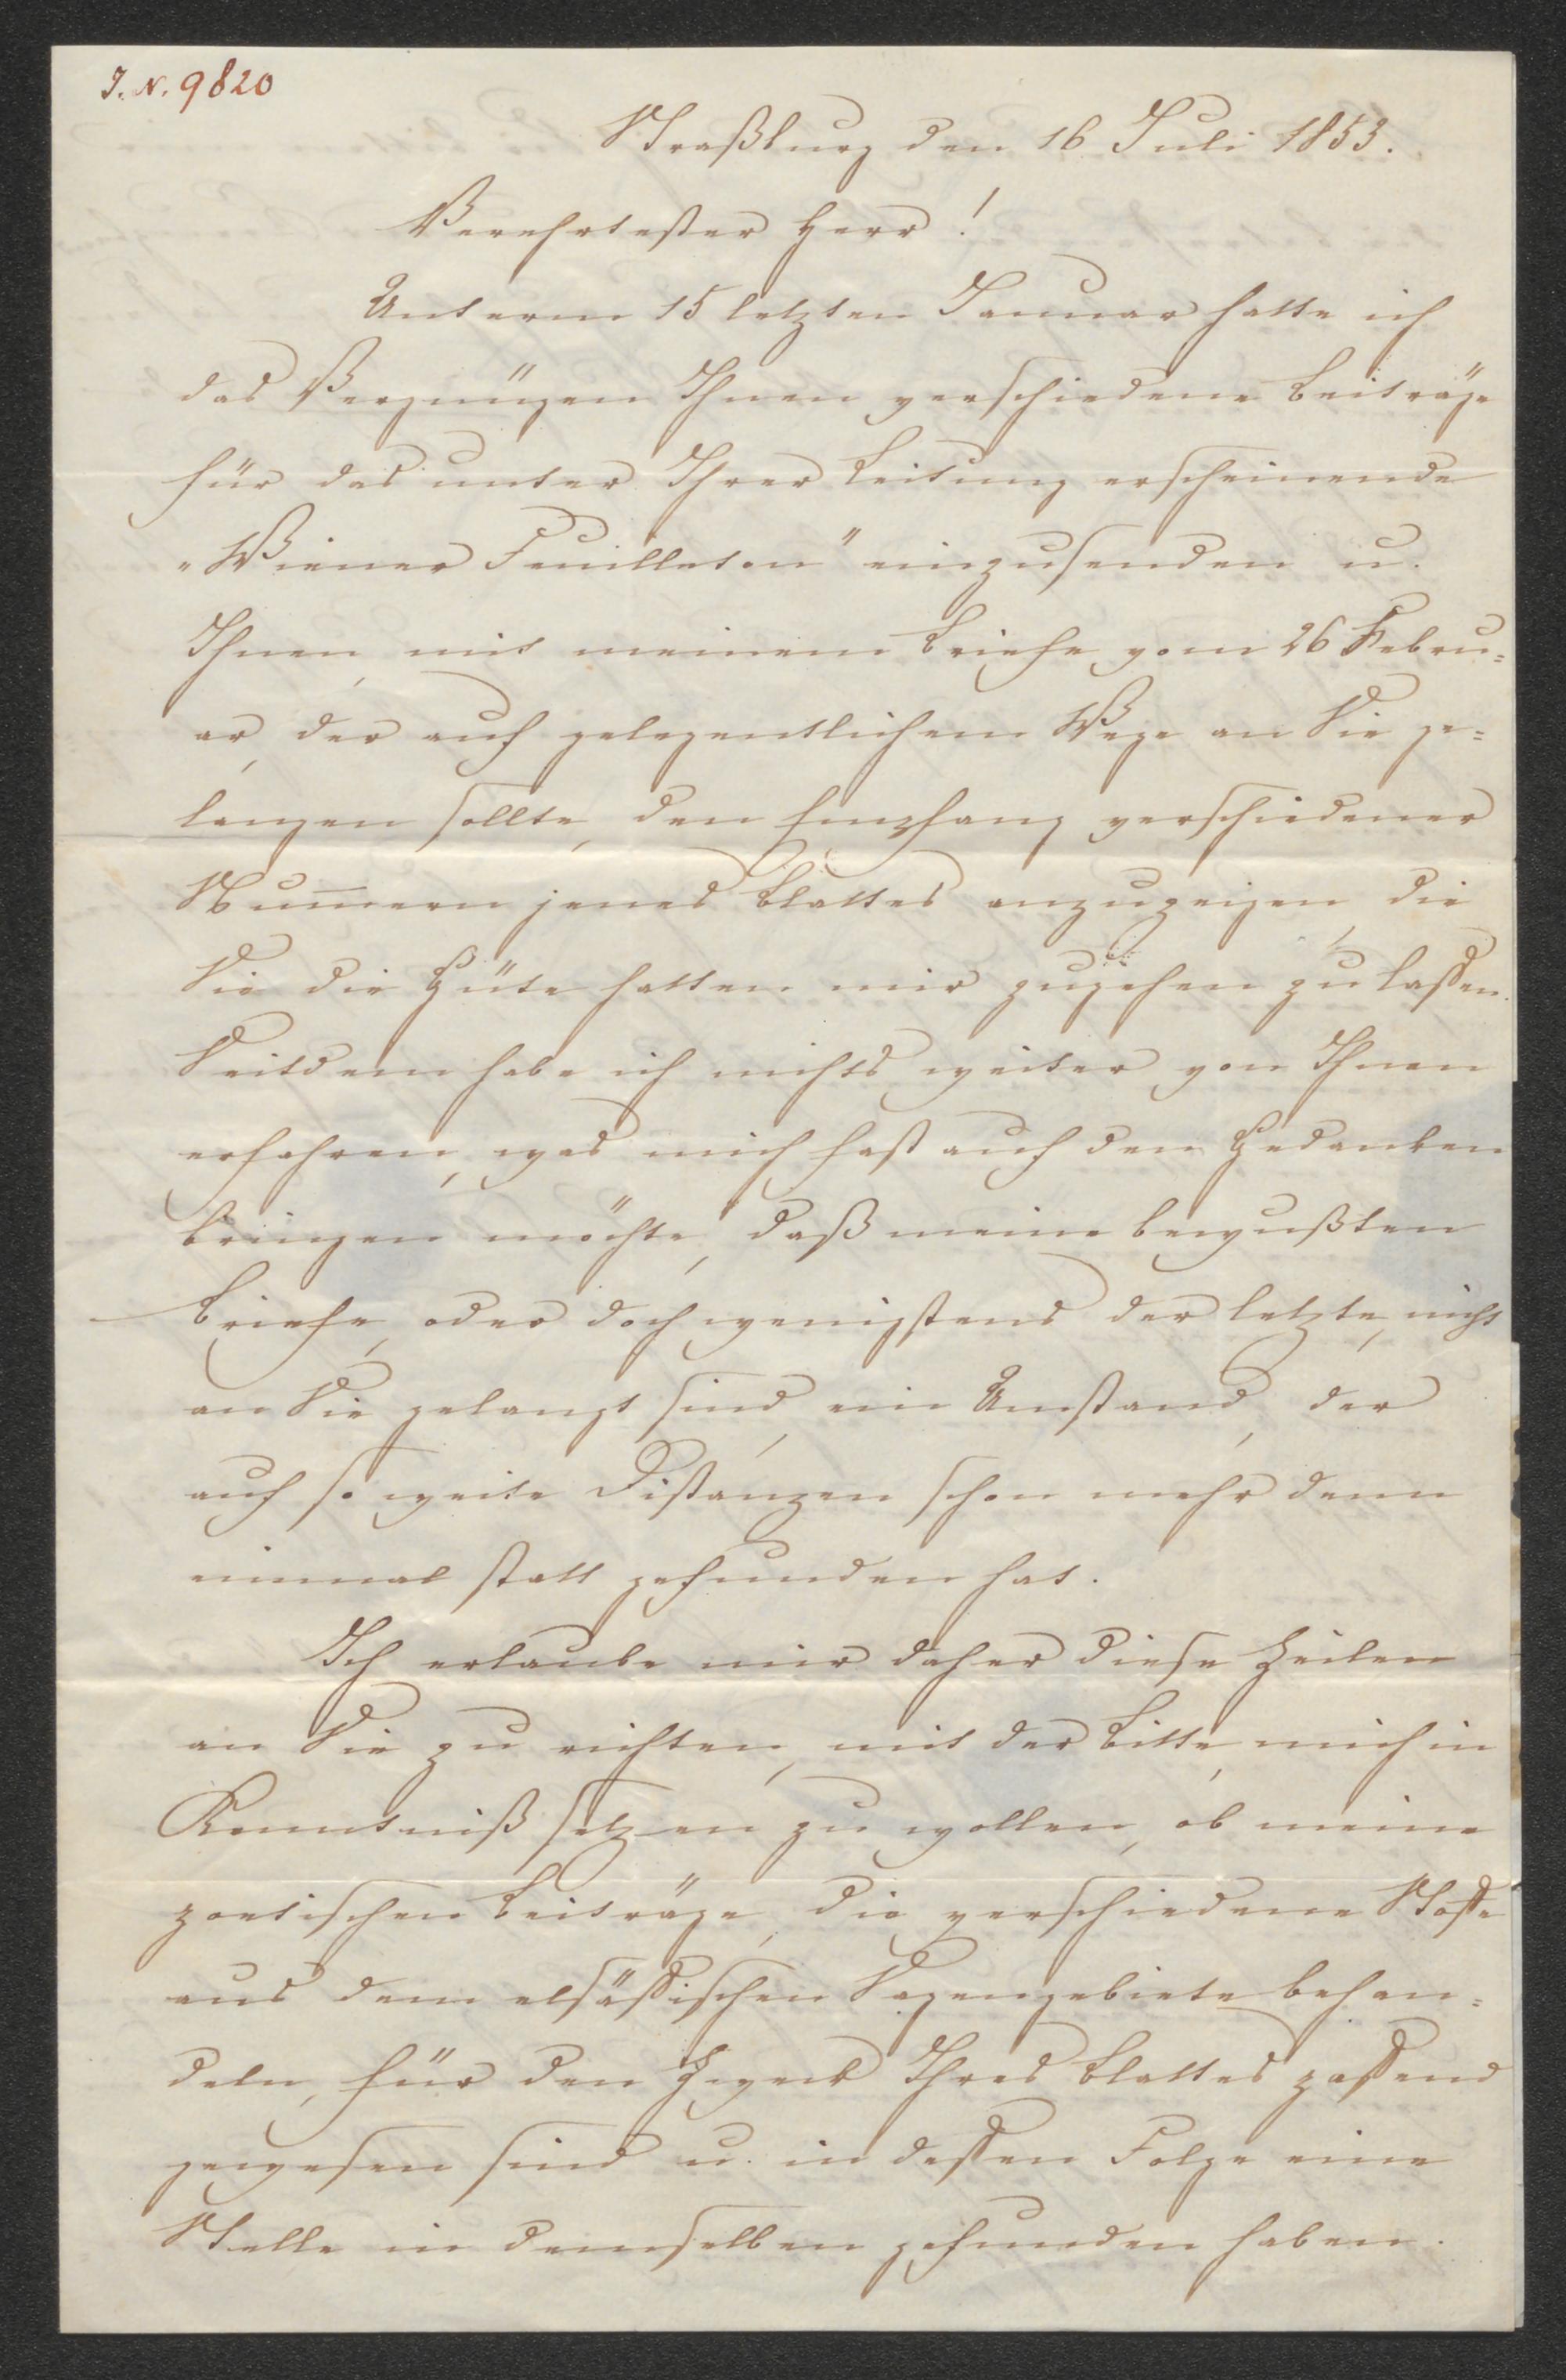 J. N. 9820
Straßburg den 16 Juli 1853.
Verehrtester Herr!
Unterm 15 letzten Januar hatte ich
das Vergnügen Ihnen verschiedene Beiträge
für das unter Ihrer Leitung erscheinende
„Wiener Feuilleton" einzusenden u.
Ihnen, mit meinem Briefe vom 26 Febru=
ar, der auf gelegentlichem Wege an Sie ge=
langen sollte, den Empfang verschiedener
Num̅ern jenes Blattes anzuzeigen, die
Sie die Güte hatten mir zugehen zu laßen.
Seitdem habe ich nichts weiter von Ihnen
erfahren, was mich fast auf den Gedanken
bringen möchte, daß meine bewußten
Briefe, oder doch wenigstens der letzte, nicht
an Sie gelangt sind, ein Umstand, der
auf so weite Distanzen schon mehr denn
einmal statt gefunden hat.
Ich erlaube mir daher diese Zeilen
an Sie zu richten, mit der Bitte, mich in
Kenntniß setzen zu wollen, ob meine
poetischen Beiträge, die verschiedene Stoffe
aus dem elsäßischen Sagengebiete behan=
deln, für den Zweck Ihres Blattes paßend
gewesen sind u. in deßen Folge eine
Stelle in demselben gefunden haben.